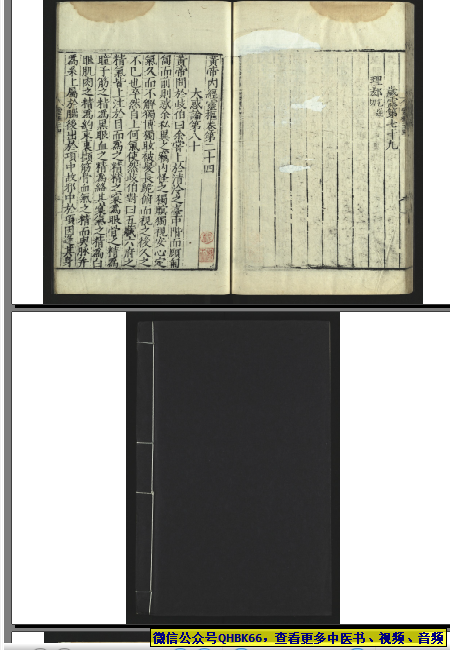 歲露第七十九
理郄
黃帝內經靈樞卷第二十四
大惑論第八十
黃帝問於岐伯曰余嘗上於清冷之臺中階而顧匍
匐而前則惑余私異之竊內怪之獨瞑獨視安心定
氣久而不解獨博獨眩披髮長跪俛而視之後久之
不已也卒然自上何氣使然岐伯對曰五藏六府之
精氣皆上注於目而爲之精精之窠爲眼骨之精爲
瞳子筋之精爲黑眼血之精爲絡其窠氣之精爲白
眼肌肉之精爲約束裹擷筋骨血氣之精而與脉并
爲系上屬於腦後出於項中故邪中於項因逢其身
微信公众号QHBK66，查看更多中医书、视频、音频